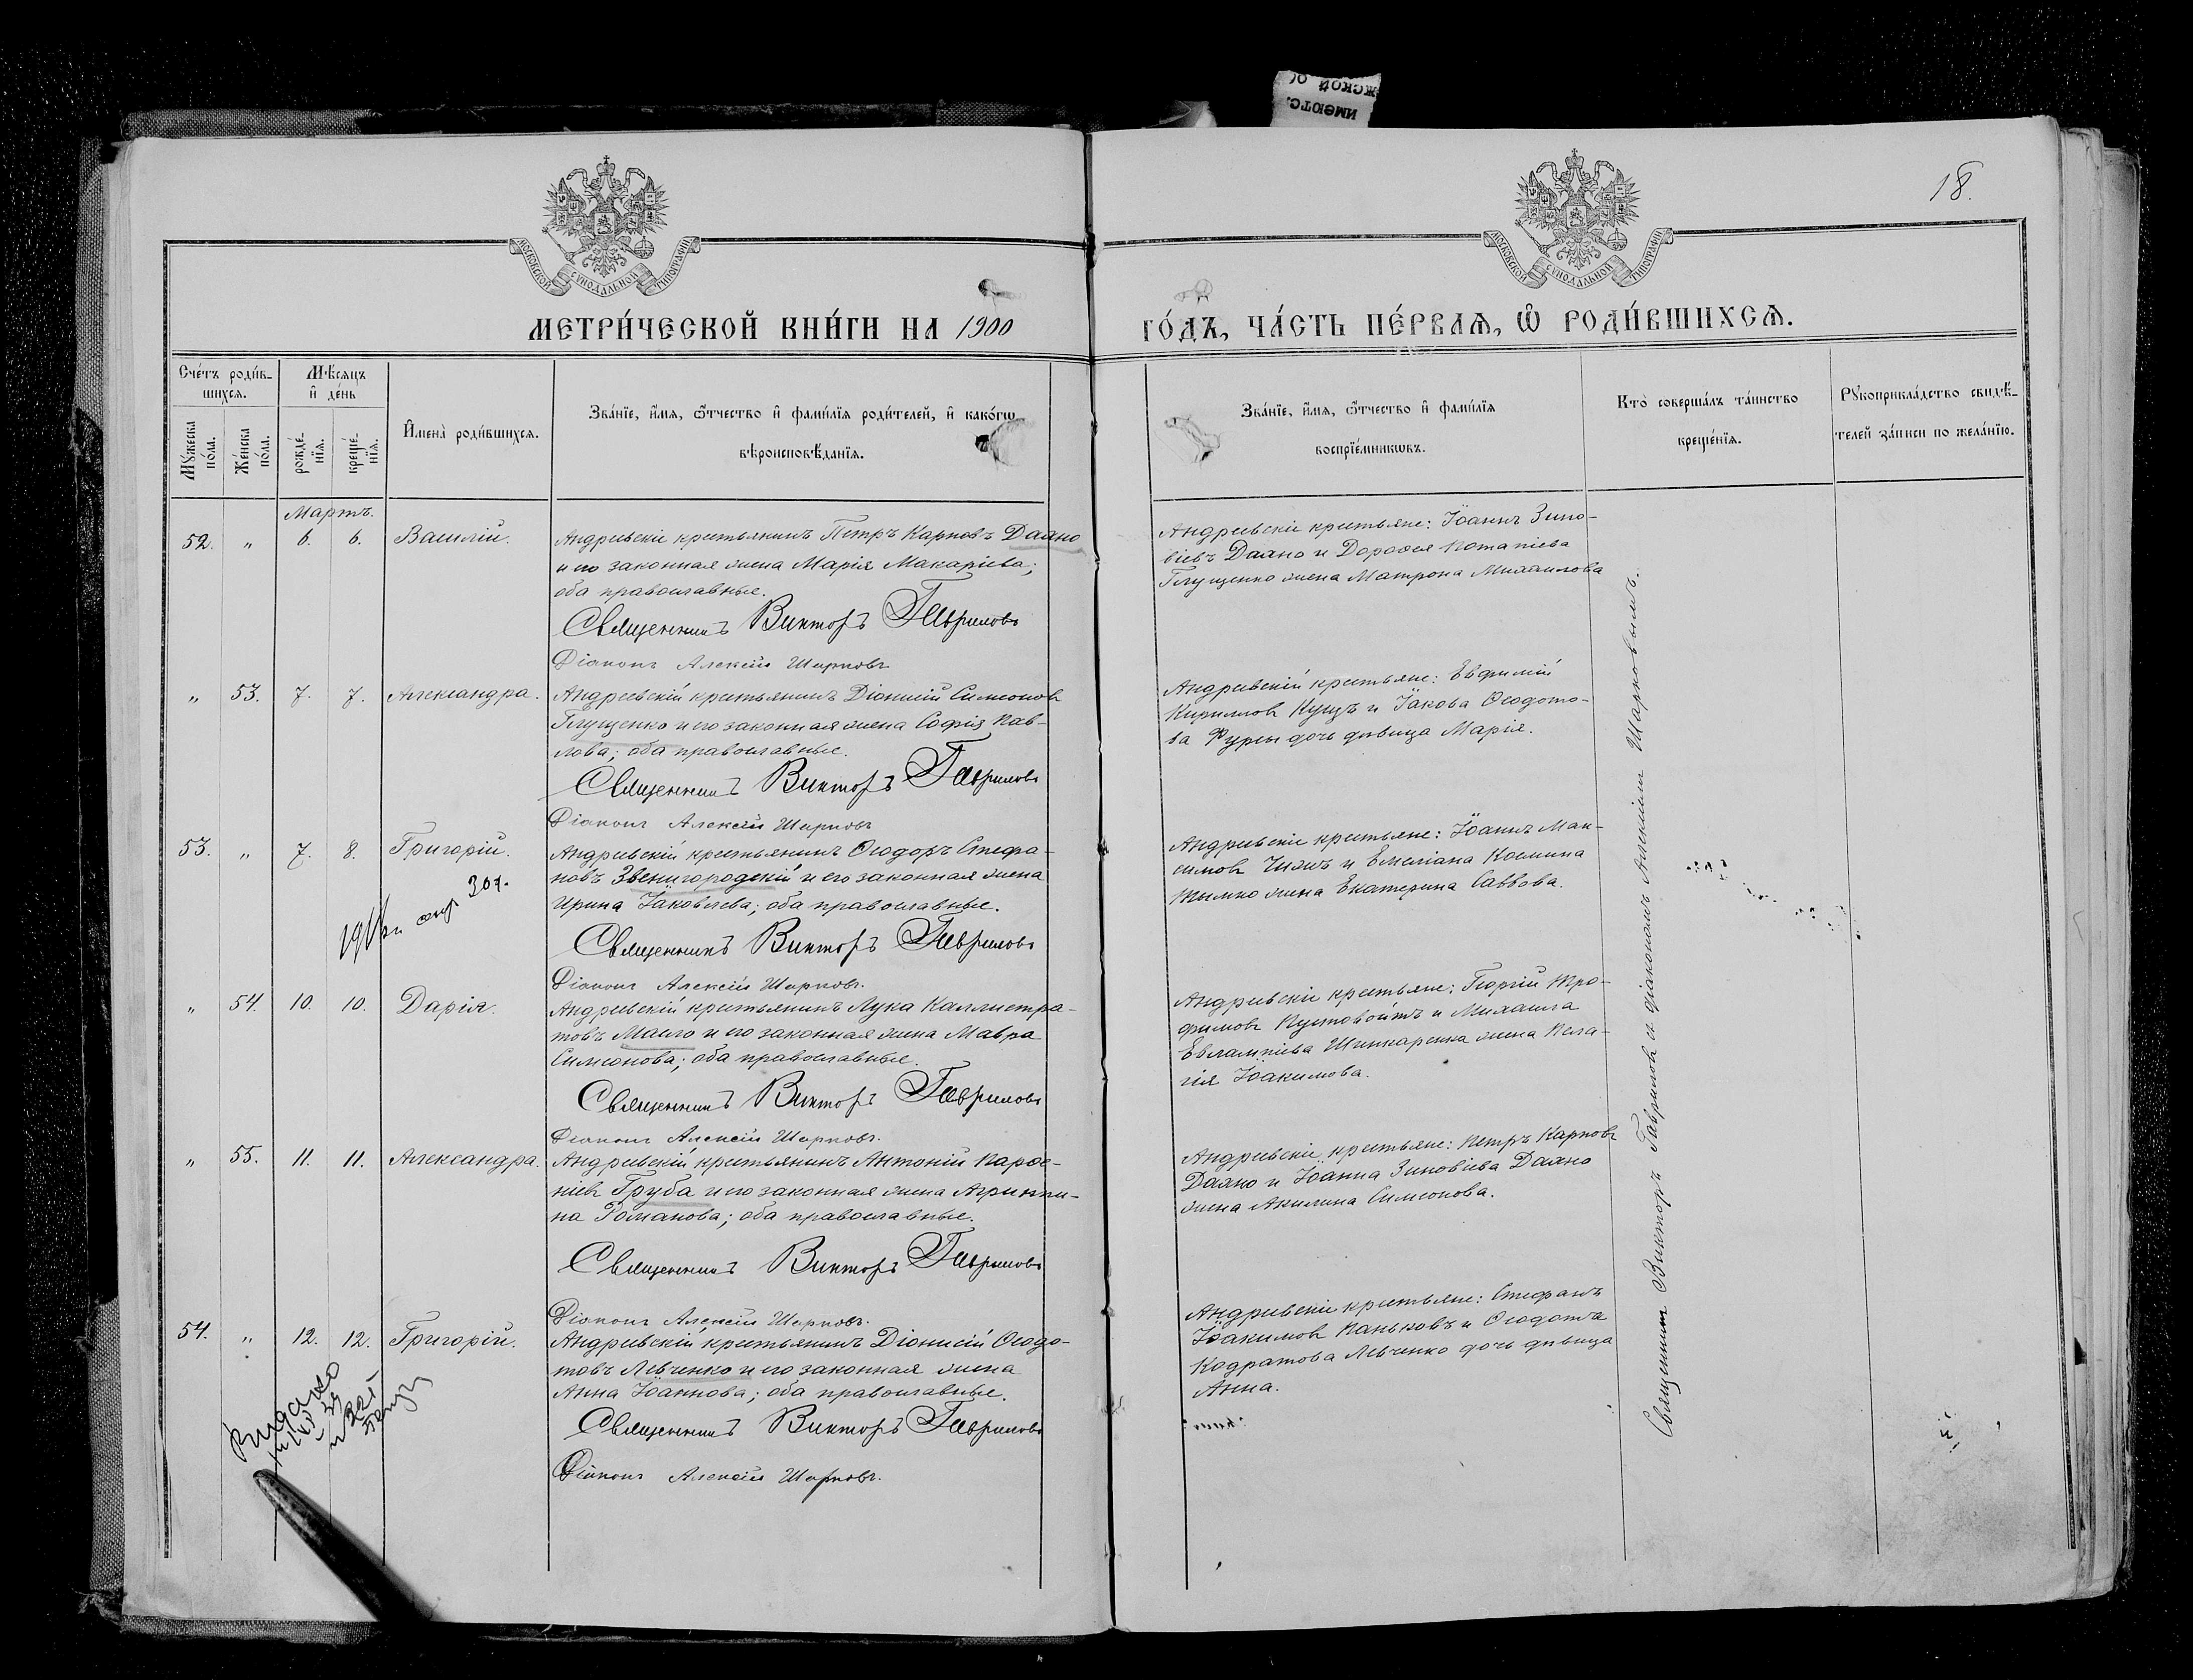 ИМѢЮТС.
ЖСКОЙ
18.
МОСКОВСКОЙ СУНОДАЛЬНОЙ ТИПОГРАФІИ
МОСКОВСКОЙ СУНОДАЛЬНОЙ ТИПОГРАФІИ
МЕТРИ́ЧЕСКОЙ КНИ́ГИ НА 1900 ГО́ДЪ, ЧА́СТЬ ПЕ́РВАѦ, Ѡ҆ РОДИ́ВШИХСѦ.
Сче́тъ роди́в-
шихсѧ.
Мѣ́сѧцъ
и҆ де́нь
Мꙋ́жеска по́ла.
Же́нска по́ла.
рожде́-
нїѧ.
креще́-
нїѧ.
И҆мена̀ роди́вшихсѧ.
Зва́нїе, и҆́мѧ, ѻ҆́тчество и҆ фами́лїѧ роди́телей, и҆ како́гѡ
вѣроисповѣ́данїѧ.
Зва́нїе, и҆́мѧ, ѻ҆́тчество и҆ фами́лїѧ
воспрїе́мникѡвъ.
Кто̀ соверша́лъ та́инство
креще́нїѧ.
Рꙋкоприкла́дство свидѣ́-
телей за́писи по жела́нїю.
Мартъ.
52. „ 6. 6. Василій.
Андреевскій крестьянинъ Петръ Карповъ Даяно
и его законная жена Марія Макаріева;
оба православные.
Священникъ Викторъ Гавриловъ
Діаконъ Алексій Шарковъ
Андреевскіе крестьяне: Іоаннъ Зино-
віевъ Даяно и Дороѳея Потапіева
Глущенко жена Матрона Михаилова
„ 53. 7. 7. Александра.
Андреевскій крестьянинъ Діонисій Симеоновъ
Глущенко и его законная жена Софія Пав-
лова; оба православные.
Священникъ Викторъ Гавриловъ
Діаконъ Алексій Шарковъ
Андреевскіе крестьяне: Евфимій
Кирилловъ Куцъ и Іакова Ѳеодото-
ва Фурсы дочь дѣвица Марія.
53. „ 7. 8. Григорій.
Андреевскій крестьянинъ Ѳеодоръ Стефа-
новъ Звенигородскій и его законная жена
Ирина Іаковлева; оба православные.
Священникъ Викторъ Гавриловъ
Діаконъ Алексій Шарковъ.
Андреевскіе крестьяне: Іоаннъ Мак-
симовъ Чижъ и Емеліана Космина
жена Екатерина Саввова.
„ 54. 10. 10. Дарія.
Андреевскій крестьянинъ Лука Каллистра-
товъ Масло и его законная жена Мавра
Симеонова; оба православные.
Священникъ Викторъ Гавриловъ
Діаконъ Алексій Шарковъ.
Андреевскіе крестьяне: Георгій Тро-
фимовъ Пустовойтъ и Михаила
Евлампіева Шинкаренка жена Пела-
гія Іоакимова.
„ 55. 11. 11. Александра.
Андреевскій крестьянинъ Антоній Парѳе-
ніевъ Груба и его законная жена Агриппи-
на Романова; оба православные.
Священникъ Викторъ Гавриловъ
Діаконъ Алексій Шарковъ.
Андреевскіе крестьяне: Петръ Карповъ
Даяно и Іоанна Зиновіева Даяно
жена Акилина Симеонова.
54. „ 12. 12. Григорій.
Андреевскій крестьянинъ Діонисій Ѳеодо-
товъ Левченко и его законная жена
Анна Іоаннова; оба православные.
Священникъ Викторъ Гавриловъ
Діаконъ Алексій Шарковъ.
Андреевскіе крестьяне: Стефанъ
Іоакимовъ Паньковъ и Ѳеодота
Кодратова Левченко дочь дѣвица
Анна.
Священникъ Викторъ Гавриловъ и діакономъ Алексіемъ Шарковымъ.